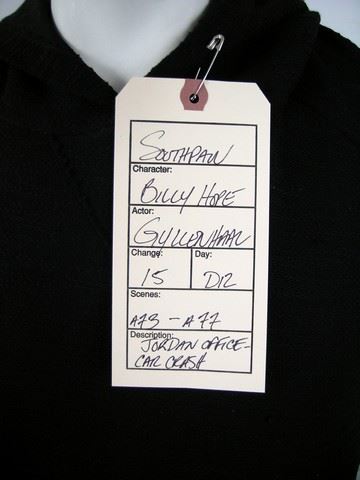 SOUTHPAW
Character:
BILLY HOPE
Actor:
GYLLENHAAL
Change: Day:
15 D12
Scenes:
A73 - A77
Description:
JORDAN OFFICE-
CAR CRASH